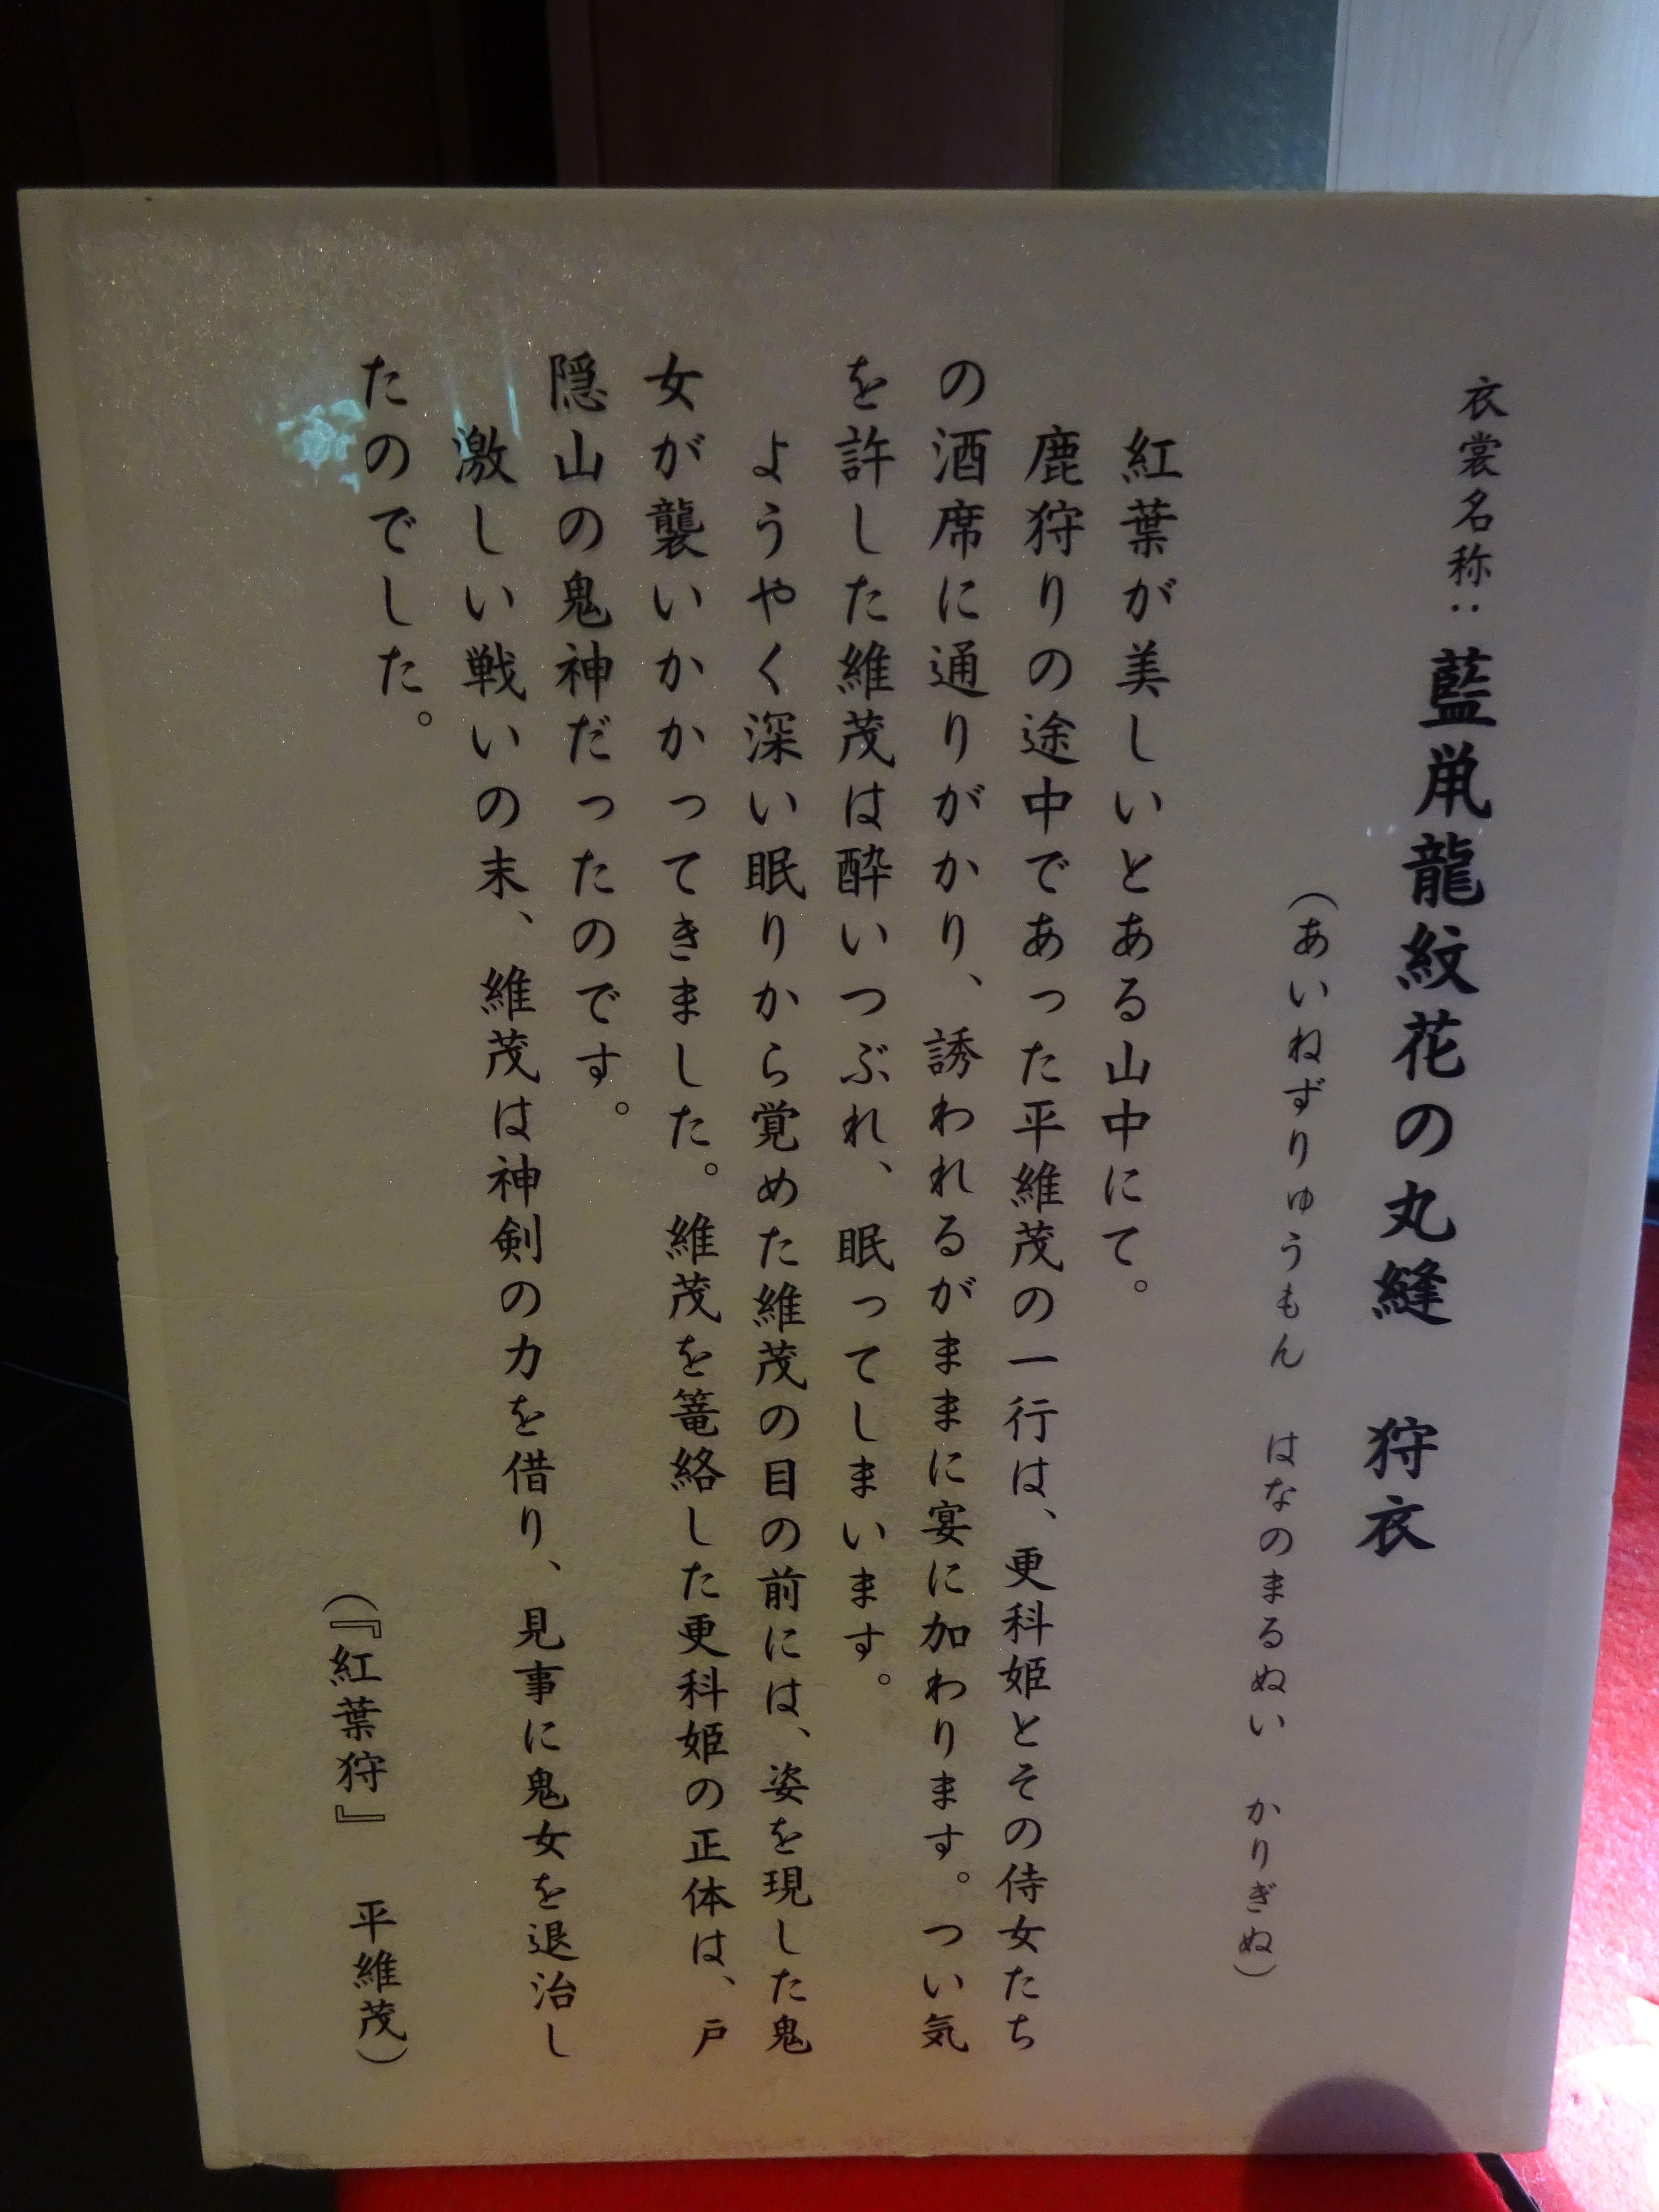 衣裳名称：藍鼠龍紋花の丸縫　狩衣
（あいねずりゅうもん　はなのまるぬい　かりぎぬ）
紅葉が美しいとある山中にて。
鹿狩りの途中であった平維茂の一行は、更科姫とその侍女たち
の酒席に通りがかり、誘われるがままに宴に加わります。つい気
を許した維茂は酔いつぶれ、眠ってしまいます。
ようやく深い眠りから覚めた維茂の目の前には、姿を現した鬼
女が襲いかかってきました。維茂を篭絡した更科姫の正体は、戸
隠山の鬼神だったのです。
激しい戦いの末、維茂は神剣の力を借り、見事に鬼女を退治し
たのでした。
（『紅葉狩』　平維茂）